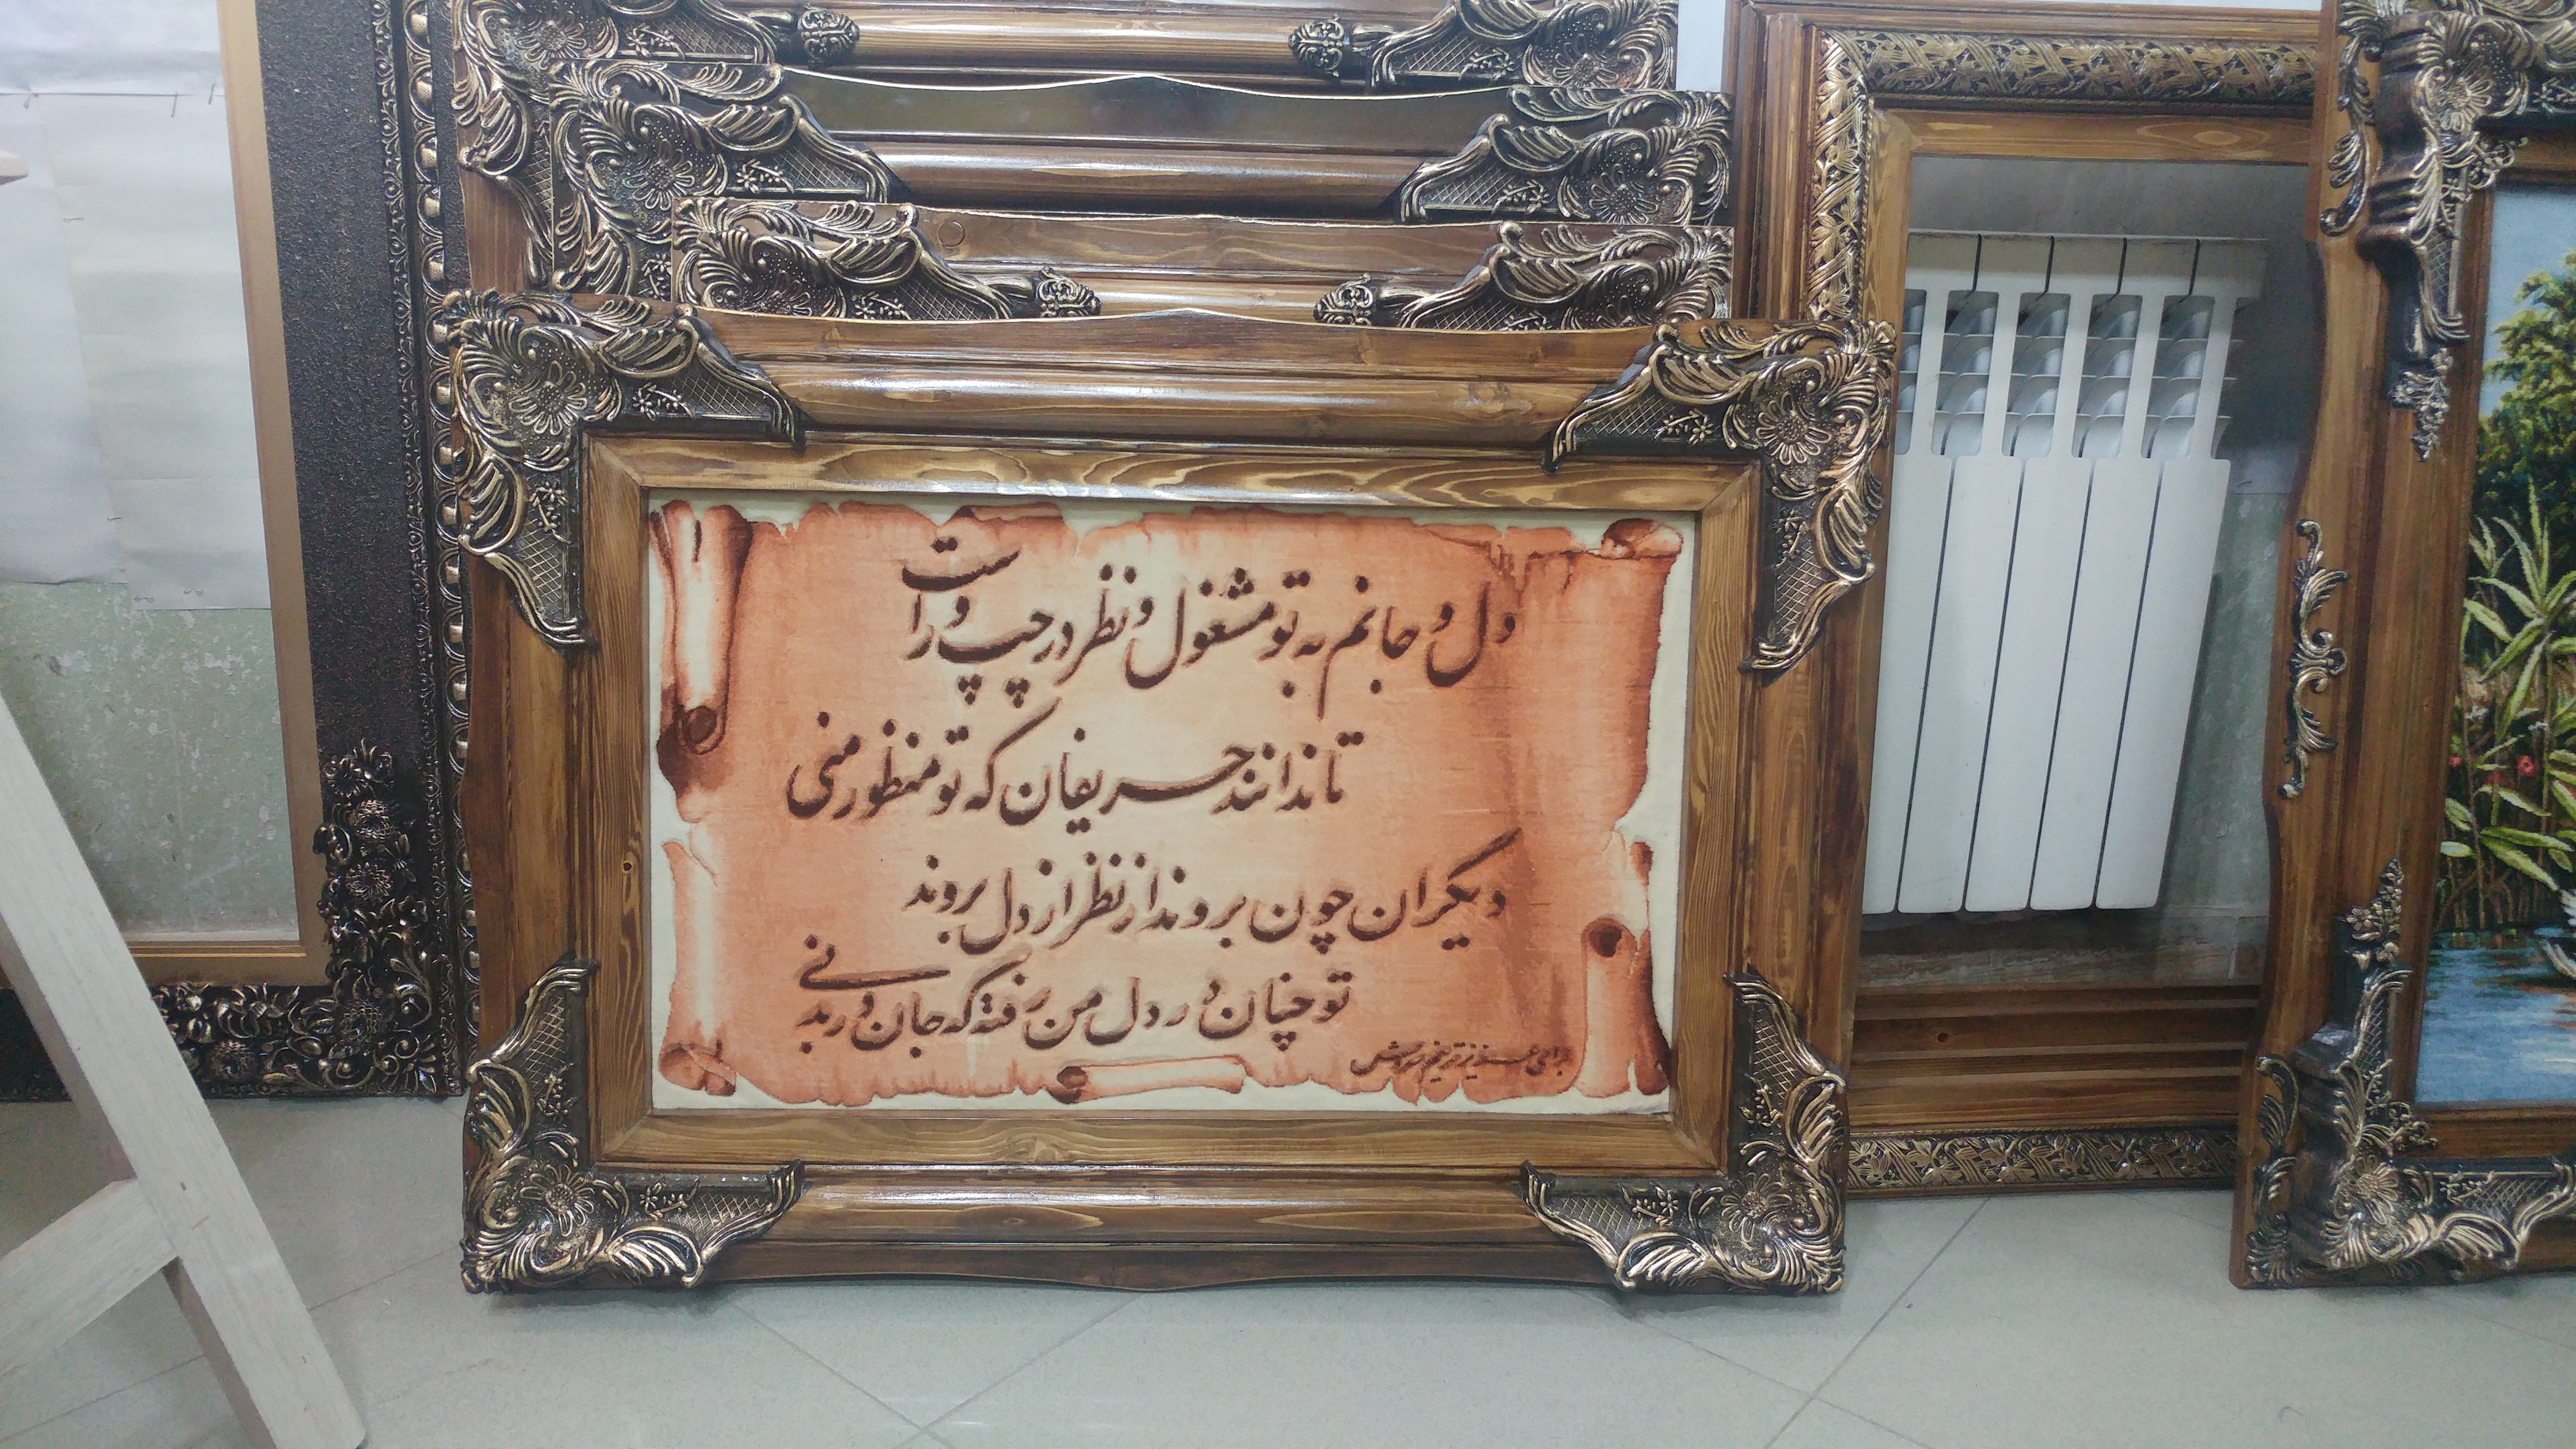 دل و جانم به تو مشغول و نظر در چپ و راست
تا ندانند حریفان که تو منظور منی
دیگران چون بروند از نظر از دل بروند
تو چنان در دل من رفته که جان در بدنی
برای